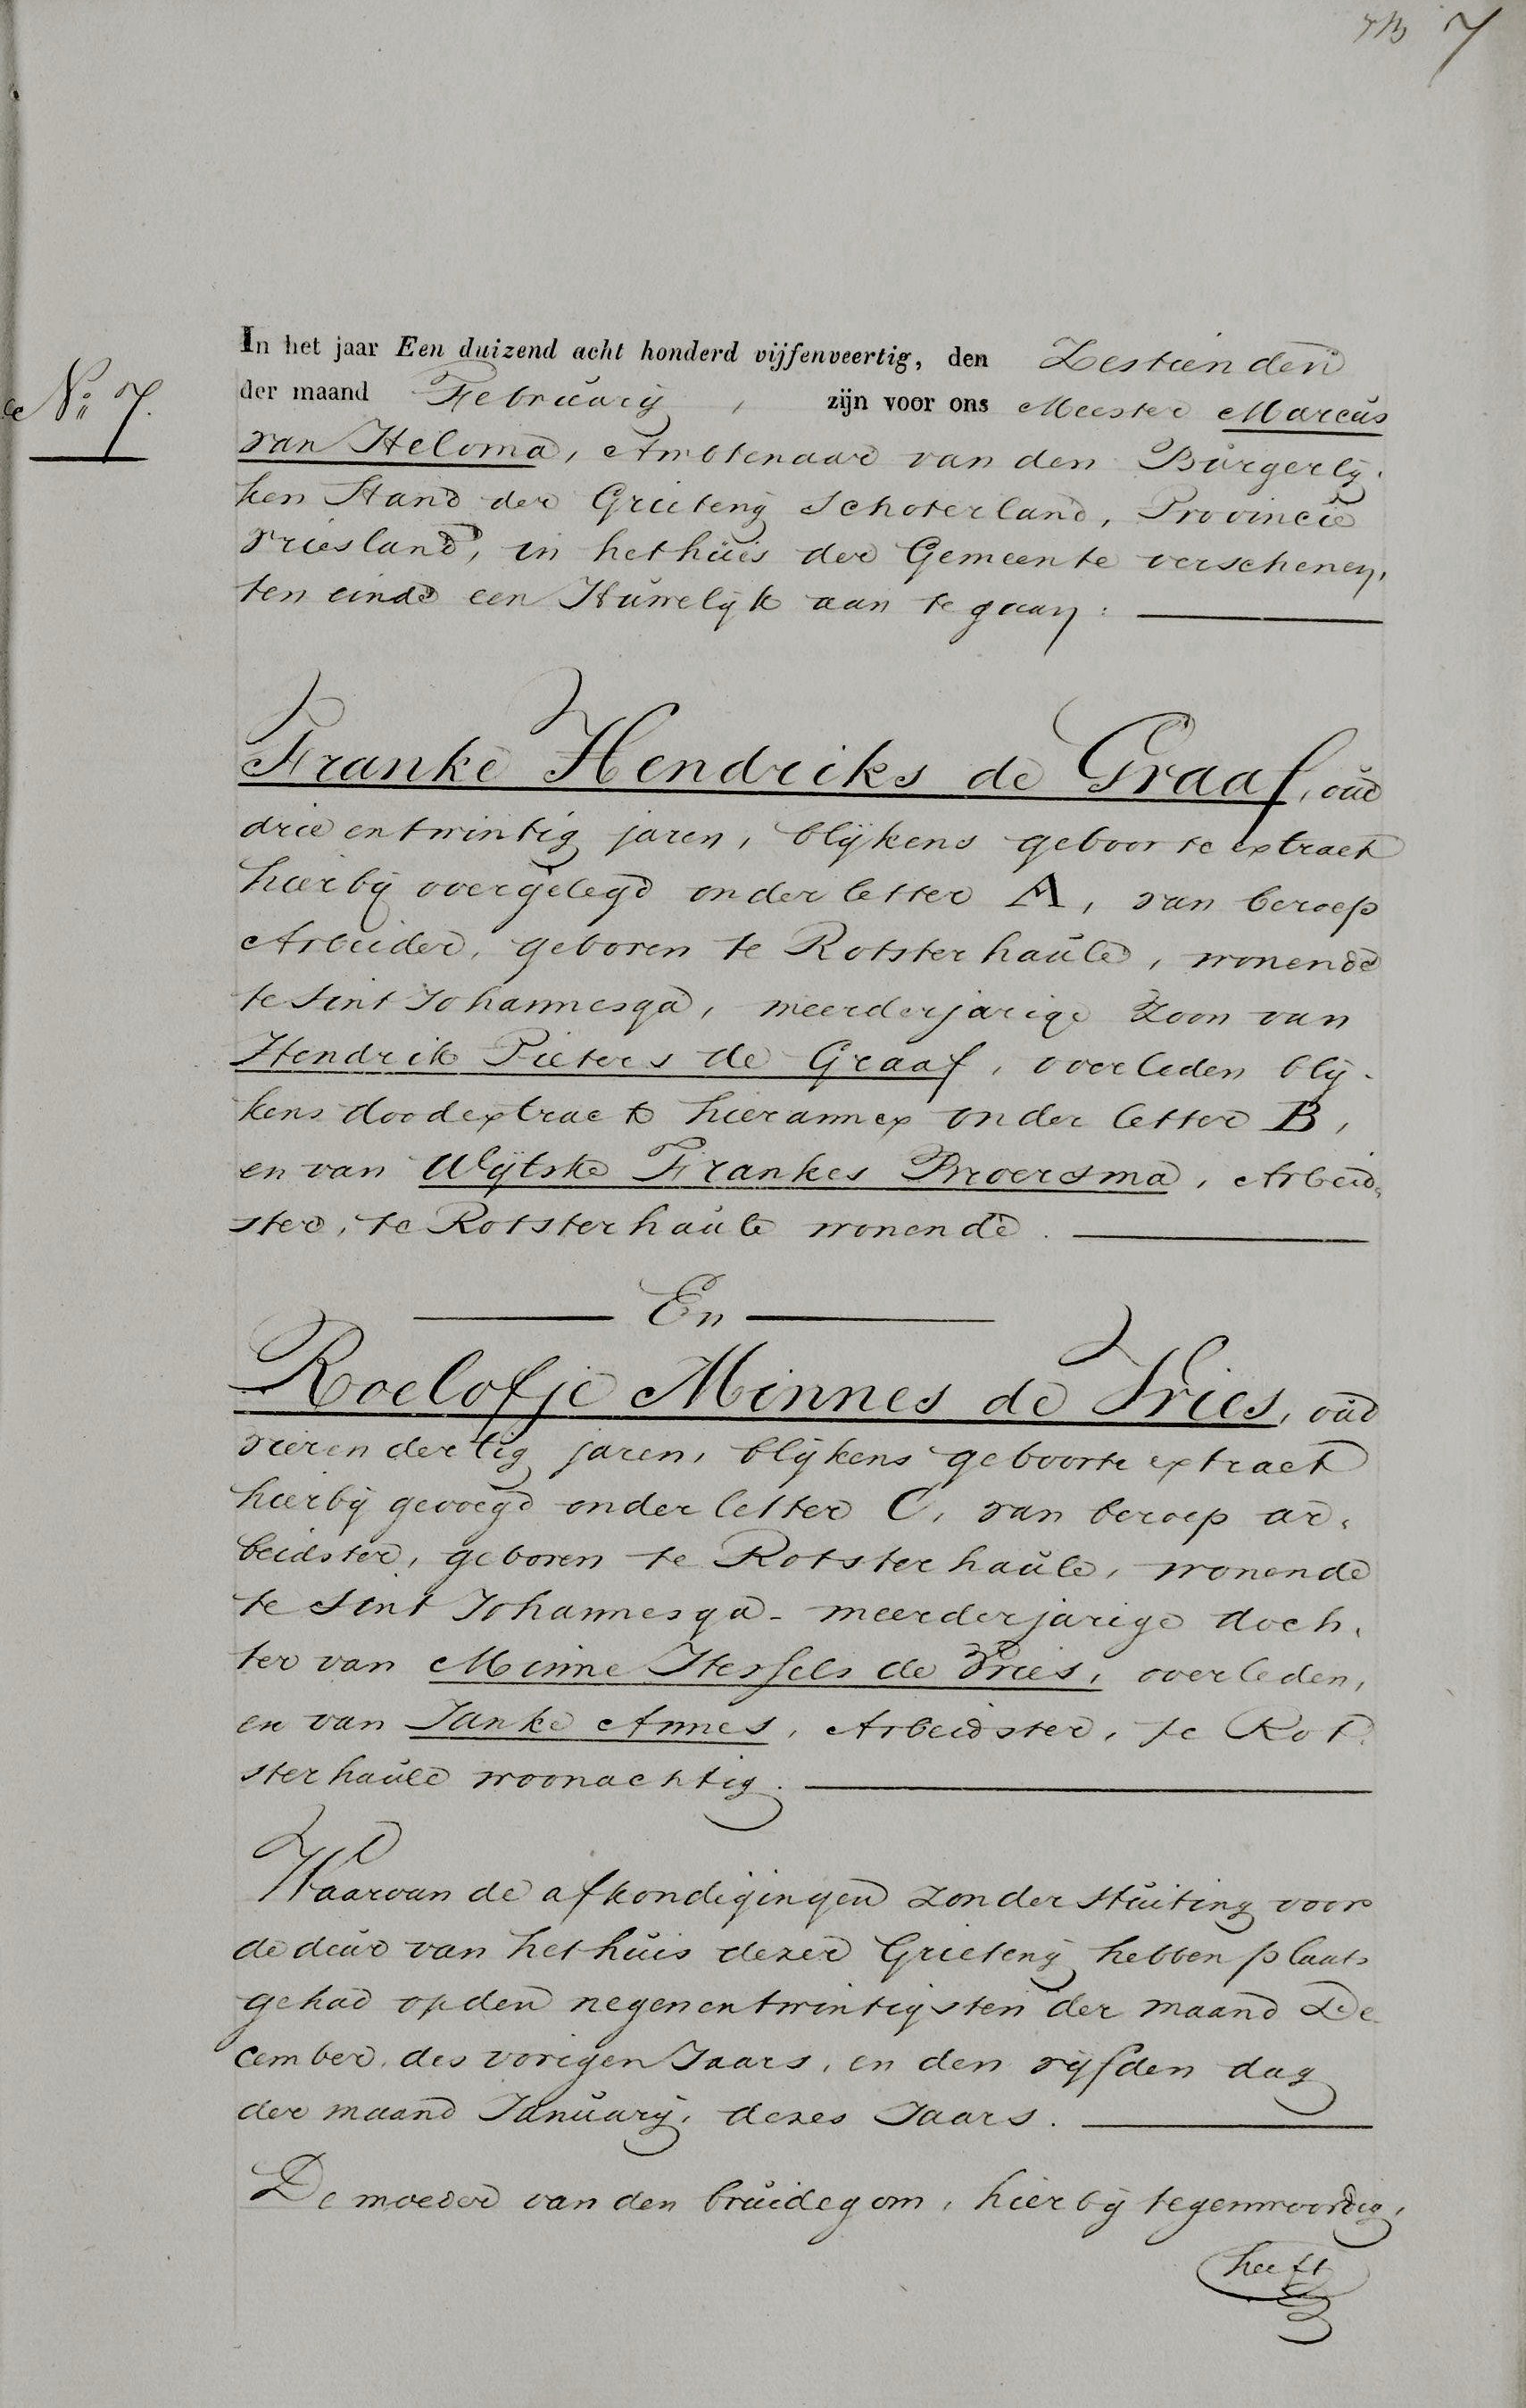 7
Nº 7.
In het jaar Een duizend acht honderd vijfenveertig, den Zestienden
der maand February, zijn voor ons Meester Marcus
van Heloma, Ambtenaar van den Burgerlij-
ken Stand der Grieteny Schoterland, Provincie
Vriesland, in het huis der Gemeente verschenen,
ten einde een Huwelijk aan te gaan:
Franke Hendriks de Graaf, oud
drie en twintig jaren, blijkens geboorte extract
hierbij overgelegd onder letter A, van beroep
Arbeider, geboren te Rotsterhaule, wonende
te Sint Johannesga, meerderjarige Zoon van
Hendrik Pieters de Graaf, overleden blij-
kens doodextract hierannex onder letter B,
en van Wytske Frankes Broersma, Arbeid-
ster, te Rotsterhaule wonende.
En
Roelofje Minnes de Vries, oud
vier en dertig jaren, blijkens geboorte extract
hierbij gevoegd onder letter C, van beroep ar-
beidster, geboren te Rotsterhaule, wonende
te Sint Johannesga - meerderjarige doch-
ter van Minne Hessels de Vries, overleden,
en van Janke Annes, Arbeidster, te Rot-
sterhaule woonachtig.
Waarvan de afkondigingen zonder stuiting voor
de deur van het huis dezer Grieteny hebben plaats
gehad op den negenentwintigsten der maand De-
cember, des vorigen Jaars, en den vijfden dag
der maand January, dezes Jaars.
De moeder van den bruidegom, hierbij tegenwoordig,
heeft